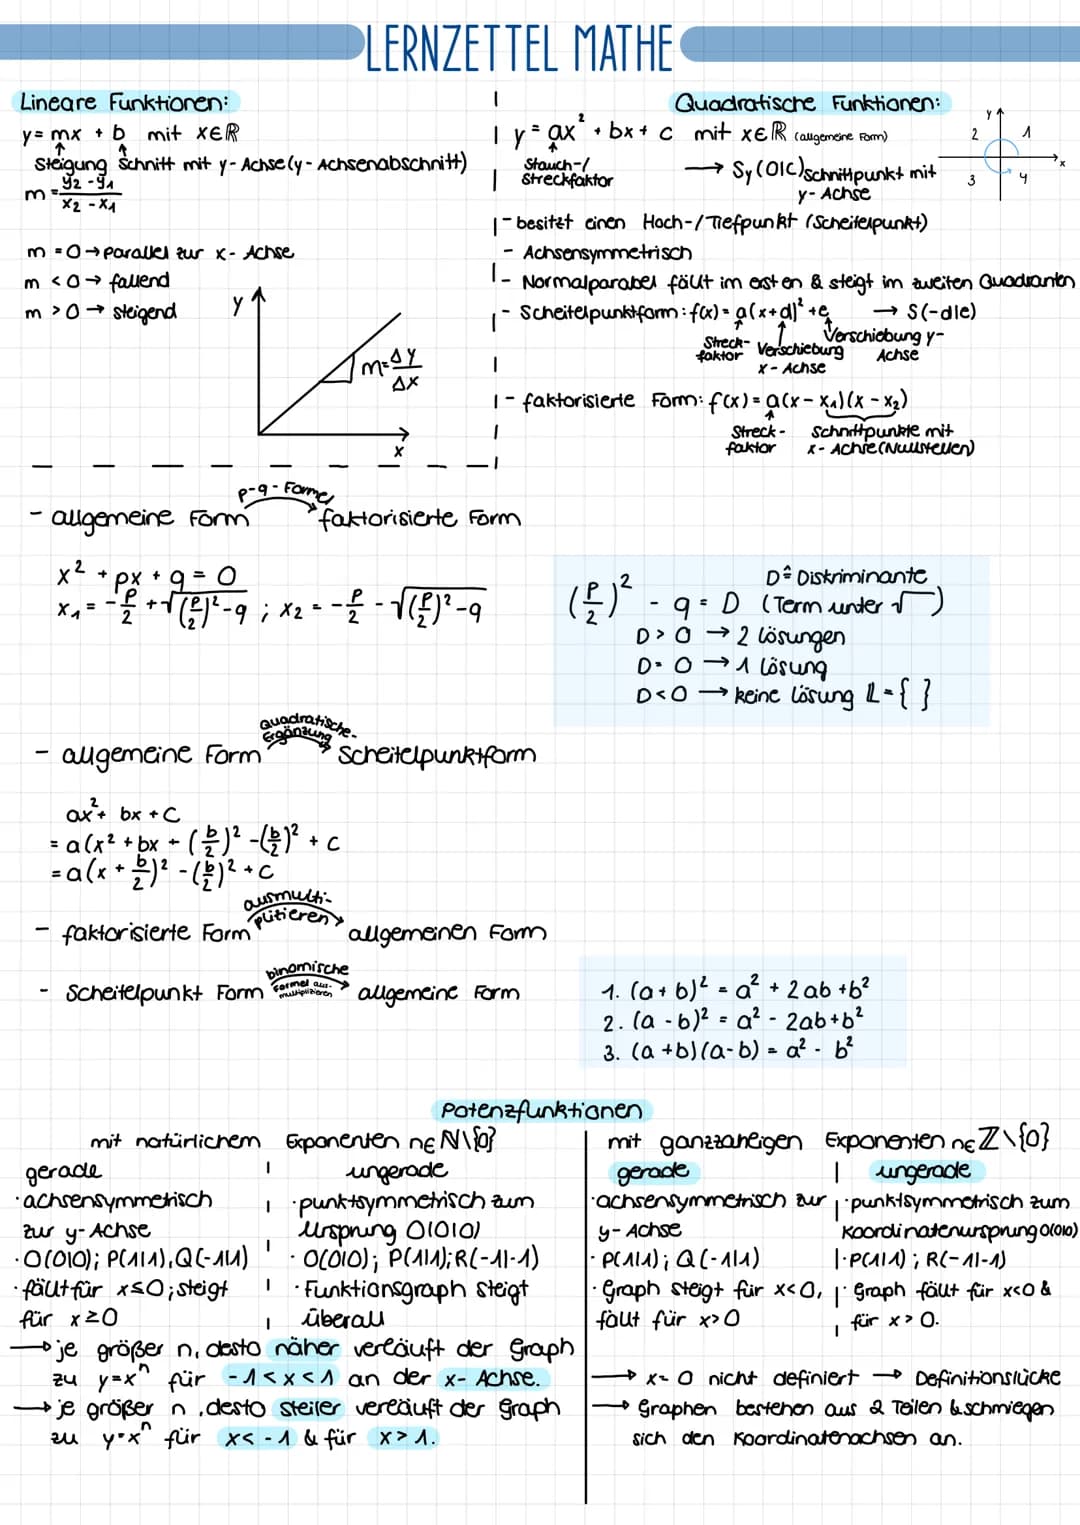 LERNZETTEL MATHE
Lineare Funktionen:
y = mx + b mit x∈ℝ
Steigung Schnitt mit y-Achse (y-Achsenabschnitt)
m = y₂ - y₁ / x₂ - x₁
m = 0 → parallel zur x-Achse
m < 0 → fallend
m > 0 → steigend
y
m = Δy / Δx
x
Quadratische Funktionen:
y = ax² + bx + c mit x∈ℝ (allgemeine Form)
Stauch-/
Streckfaktor
→ Sy(0|c) Schnittpunkt mit
y-Achse
y
2 1
x
3 4
- besitzt einen Hoch-/Tiefpunkt (Scheitelpunkt)
- Achsensymmetrisch
- Normalparabel fällt im ersten & steigt im zweiten Quadranten
- Scheitelpunktform: f(x) = a(x+d)² + e → S(-d|e)
Streck-
faktor
Verschiebung
x-Achse
Verschiebung y-
Achse
- faktorisierte Form: f(x) = a(x - x₁)(x - x₂)
Streck-
faktor
Schnittpunkte mit
x-Achse (Nullstellen)
p-q-Formel
- allgemeine Form faktorisierte Form
x² + px + q = 0
x₁ = -p/2 + √(p/2)² - q ; x₂ = -p/2 - √(p/2)² - q
(p/2)² - q = D
D ≙ Diskriminante
(Term unter √ )
D > 0 → 2 Lösungen
D = 0 → 1 Lösung
D < 0 → keine Lösung 𝕃 = { }
Quadratische-
Ergänzung
- allgemeine Form Scheitelpunktform
ax² + bx + c
= a(x² + bx + (b/2)² - (b/2)² + c
= a(x + b/2)² - (b/2)² + c
ausmulti-
plitieren
- faktorisierte Form allgemeinen Form
binomische
Formel aus-
multiplizieren
- Scheitelpunkt Form allgemeine Form
1. (a + b)² = a² + 2ab + b²
2. (a - b)² = a² - 2ab + b²
3. (a + b)(a - b) = a² - b²
Potenzfunktionen
mit natürlichem Exponenten n∈ℕ\{0}
gerade
· achsensymmetrisch
zur y-Achse
· O(0|0); P(1|1), Q(-1|1)
· fällt für x≤0; steigt
für x≥0
ungerade
· punktsymmetrisch zum
Ursprung O(0|0)
· O(0|0); P(1|1); R(-1|-1)
· Funktionsgraph steigt
überall
→ je größer n, desto näher verläuft der Graph
zu y=xⁿ für -1<x<1 an der x-Achse.
→ je größer n, desto steiler verläuft der Graph
zu y=xⁿ für x<-1 & für x>1.
mit ganzzaheigen Exponenten n∈ℤ\{0}
gerade
· achsensymmetrisch zur
y-Achse
· P(1|1); Q(-1|1)
· Graph steigt für x<0,
fällt für x>0
ungerade
· punktsymmetrisch zum
Koordinatenursprung O(0|0)
· P(1|1); R(-1|-1)
· Graph fällt für x<0 &
für x>0.
→ x=0 nicht definiert → Definitionslücke
→ Graphen bestehen aus 2 Teilen & schmiegen
sich den Koordinatenachsen an.